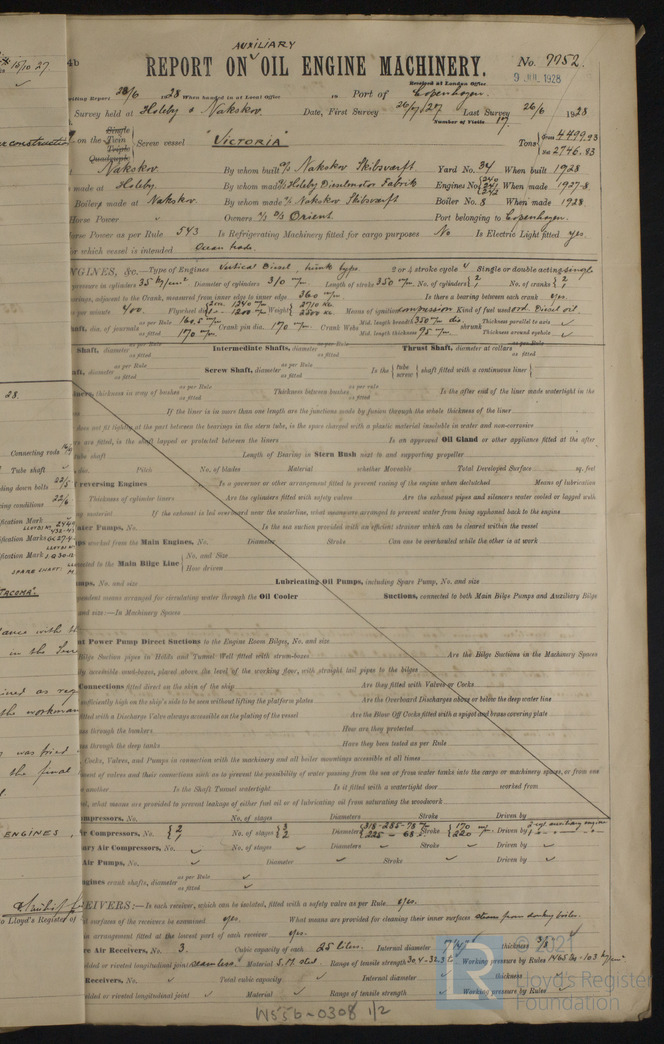 15/10 27.
4b
AUXILIARY
REPORT ON OIL ENGINE MACHINERY.
No. 7752.
Received at London Office
9 JUL 1928
Writing Report 28/6 1928 When handed in at Local Office 19 Port of Copenhagen.
Survey held at Holeby & Nakskov. Date, First Survey 26/7/27 Last Survey 26/6 1928
Number of Visits 17
on the Single Twin Triple Quadruple Screw vessel "VICTORIA" Tons Gross 4499.93 Net 2746.83
Nakskov. By whom built A/S Nakskov Skibsværft Yard No. 34 When built 1928
made at Holeby. By whom made A/S Holeby Dieselmotor Fabrik Engines No. 240 241 242 When made 1927-8.
Boilers made at Nakskov. By whom made A/S Nakskov Skibsværft Boiler No. 8 When made 1928.
Horse Power Owners A/S D/S Orient. Port belonging to Copenhagen.
Horse Power as per Rule 543 Is Refrigerating Machinery fitted for cargo purposes No Is Electric Light fitted yes.
for which vessel is intended Ocean trade.
ENGINES, &c.—Type of Engines Vertical Diesel, trunk type. 2 or 4 stroke cycle 4 Single or double acting single
pressure in cylinders 35 kg/cm² Diameter of cylinders 310 m/m Length of stroke 350 m/m No. of cylinders 2 No. of cranks 2
bearings, adjacent to the Crank, measured from inner edge to inner edge 360 m/m Is there a bearing between each crank yes.
per minute 400. Flywheel dia. 1340 m/m 1200 m/m Weight 2710 kg 2300 kg Means of ignition compression Kind of fuel used ord. Diesel oil.
Shaft, dia. of journals as per Rule 160.5 m/m as fitted 170 m/m Crank pin dia. 170 m/m Crank Webs Mid. length breadth 350 m/m dia Mid. length thickness 95 m/m shrunk Thickness parallel to axis Thickness around eyehole
Shaft, diameter as per Rule as fitted Intermediate Shafts, diameter as per Rule as fitted Thrust Shaft, diameter at collars as per Rule as fitted
Shaft, diameter as per Rule as fitted Screw Shaft, diameter as per Rule as fitted Is the tube screw shaft fitted with a continuous liner
liners, thickness in way of bushes as per Rule as fitted Thickness between bushes as per rule as fitted Is the after end of the liner made watertight in the
If the liner is in more than one length are the junctions made by fusion through the whole thickness of the liner
does not fit tightly at the part between the bearings in the stern tube, is the space charged with a plastic material insoluble in water and non-corrosive
are fitted, is the shaft lapped or protected between the liners Is an approved Oil Gland or other appliance fitted at the after
tube shaft Length of Bearing in Stern Bush next to and supporting propeller
dia. Pitch No. of blades Material whether Moveable Total Developed Surface sq. feet
reversing Engines Is a governor or other arrangement fitted to prevent racing of the engine when declutched Means of lubrication
Thickness of cylinder liners Are the cylinders fitted with safety valves Are the exhaust pipes and silencers water cooled or lagged with
material If the exhaust is led overboard near the waterline, what means are arranged to prevent water from being syphoned back to the engine
Water Pumps, No. Is the sea suction provided with an efficient strainer which can be cleared within the vessel
worked from the Main Engines, No. Diameter Stroke Can one be overhauled while the other is at work
connected to the Main Bilge Line No. and Size How driven
Pumps, No. and size Lubricating Oil Pumps, including Spare Pump, No. and size
independent means arranged for circulating water through the Oil Cooler Suctions, connected to both Main Bilge Pumps and Auxiliary Bilge
and size:—In Machinery Spaces
Power Pump Direct Suctions to the Engine Room Bilges, No. and size
Bilge Suction pipes in Holds and Tunnel Well fitted with strum-boxes Are the Bilge Suctions in the Machinery Spaces
easily accessible mud-boxes, placed above the level of the working floor, with straight tail pipes to the bilges
Connections fitted direct on the skin of the ship Are they fitted with Valves or Cocks
sufficiently high on the ship's side to be seen without lifting the platform plates Are the Overboard Discharges above or below the deep water line
fitted with a Discharge Valve always accessible on the plating of the vessel Are the Blow Off Cocks fitted with a spigot and brass covering plate
pass through the bunkers How are they protected
pass through the deep tanks Have they been tested as per Rule
Cocks, Valves, and Pumps in connection with the machinery and all boiler mountings accessible at all times
arrangement of valves and their connections such as to prevent the possibility of water passing from the sea or from water tanks into the cargo or machinery spaces, or from one
another Is the Shaft Tunnel watertight Is it fitted with a watertight door worked from
what means are provided to prevent leakage of either fuel oil or of lubricating oil from saturating the woodwork
Compressors, No. No. of stages Diameters Stroke Driven by
Air Compressors, No. 2 1 No. of stages 3 2 Diameters 318-285-78 m/m 225 - 68 Stroke 170 m/m 220 Driven by 2-cyl. auxiliary engine
Air Compressors, No. ✓ No. of stages ✓ Diameters ✓ Stroke ✓ Driven by ✓
Air Pumps, No. ✓ Diameter ✓ Stroke ✓ Driven by ✓
Engines crank shafts, diameter as per Rule ✓ as fitted ✓
RECEIVERS:—Is each receiver, which can be isolated, fitted with a safety valve as per Rule yes.
surfaces of the receivers be examined yes. What means are provided for cleaning their inner surfaces steam from donkey boiler.
arrangement fitted at the lowest part of each receiver yes.
Air Receivers, No. 3. Cubic capacity of each 25 liters. Internal diameter thickness
welded or riveted longitudinal joint seamless Material S.M. steel. Range of tensile strength 30.4-32.3 Working pressure by Rules
Receivers, No. ✓ Total cubic capacity ✓ Internal diameter ✓ thickness ✓
welded or riveted longitudinal joint ✓ Material ✓ Range of tensile strength ✓ Working pressure by Rules ✓
W556-0308 1/2
28.
Connecting rods
Tube shaft ✓
holding down bolts 22/5
working conditions 22/6
Identification Mark
Identification Marks
Identification Mark
SPARE SHAFT:
"TACOMA".
the workman
was tried
the final
ENGINES
to Lloyd's Register of
© 2021
Lloyd's Register
Foundation
LR